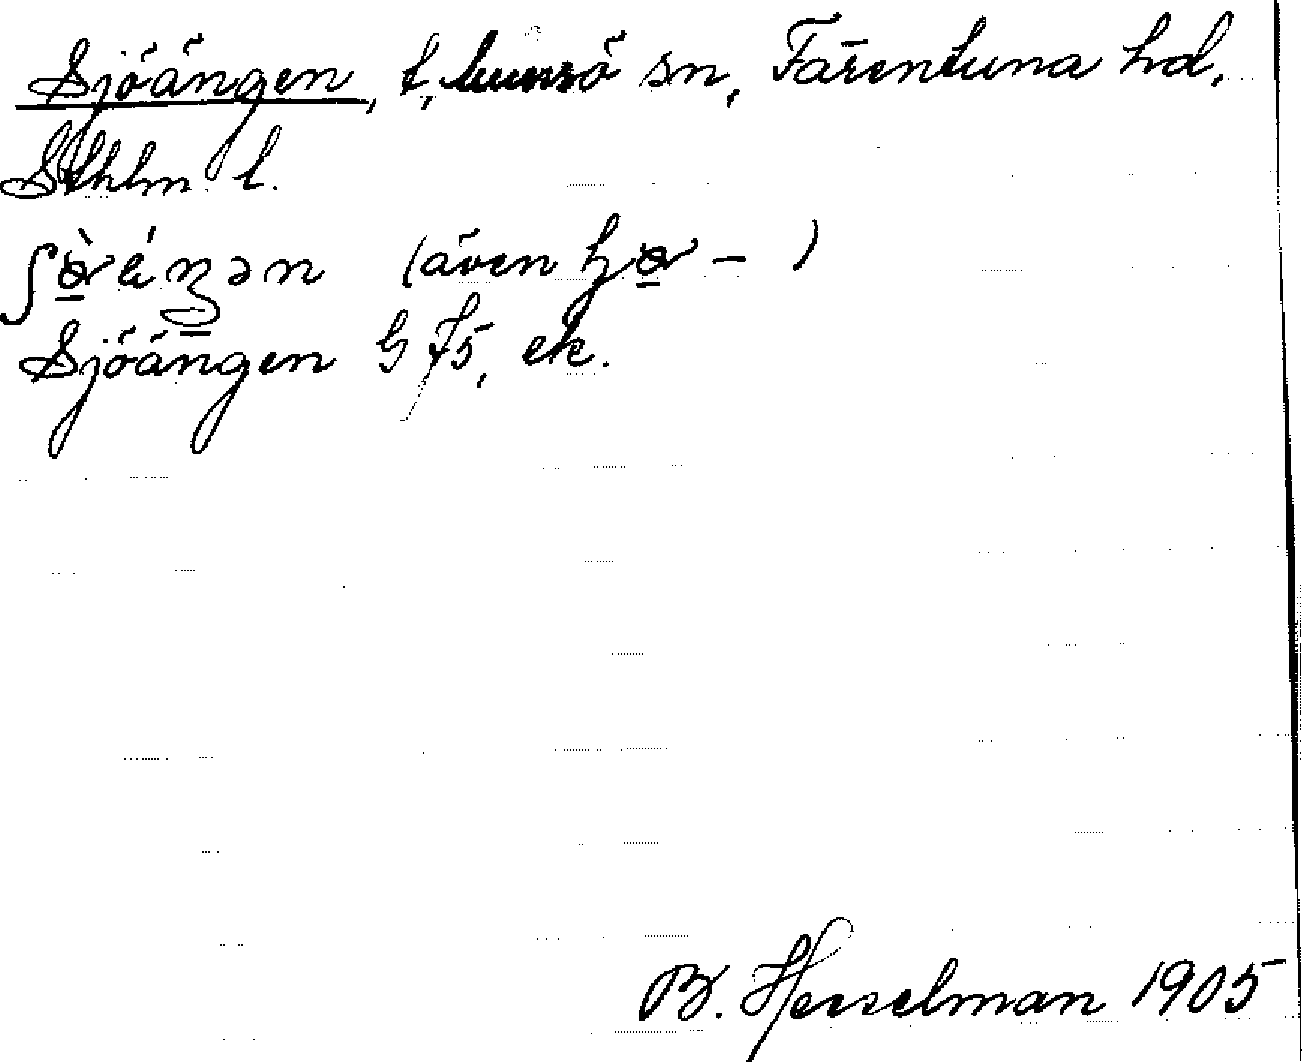 Sjöängen, t, Munsö sn, Färentuna hd,
Sthlm l.
(även
Sjöängen G 75, ek.
B. Hesselman 1905